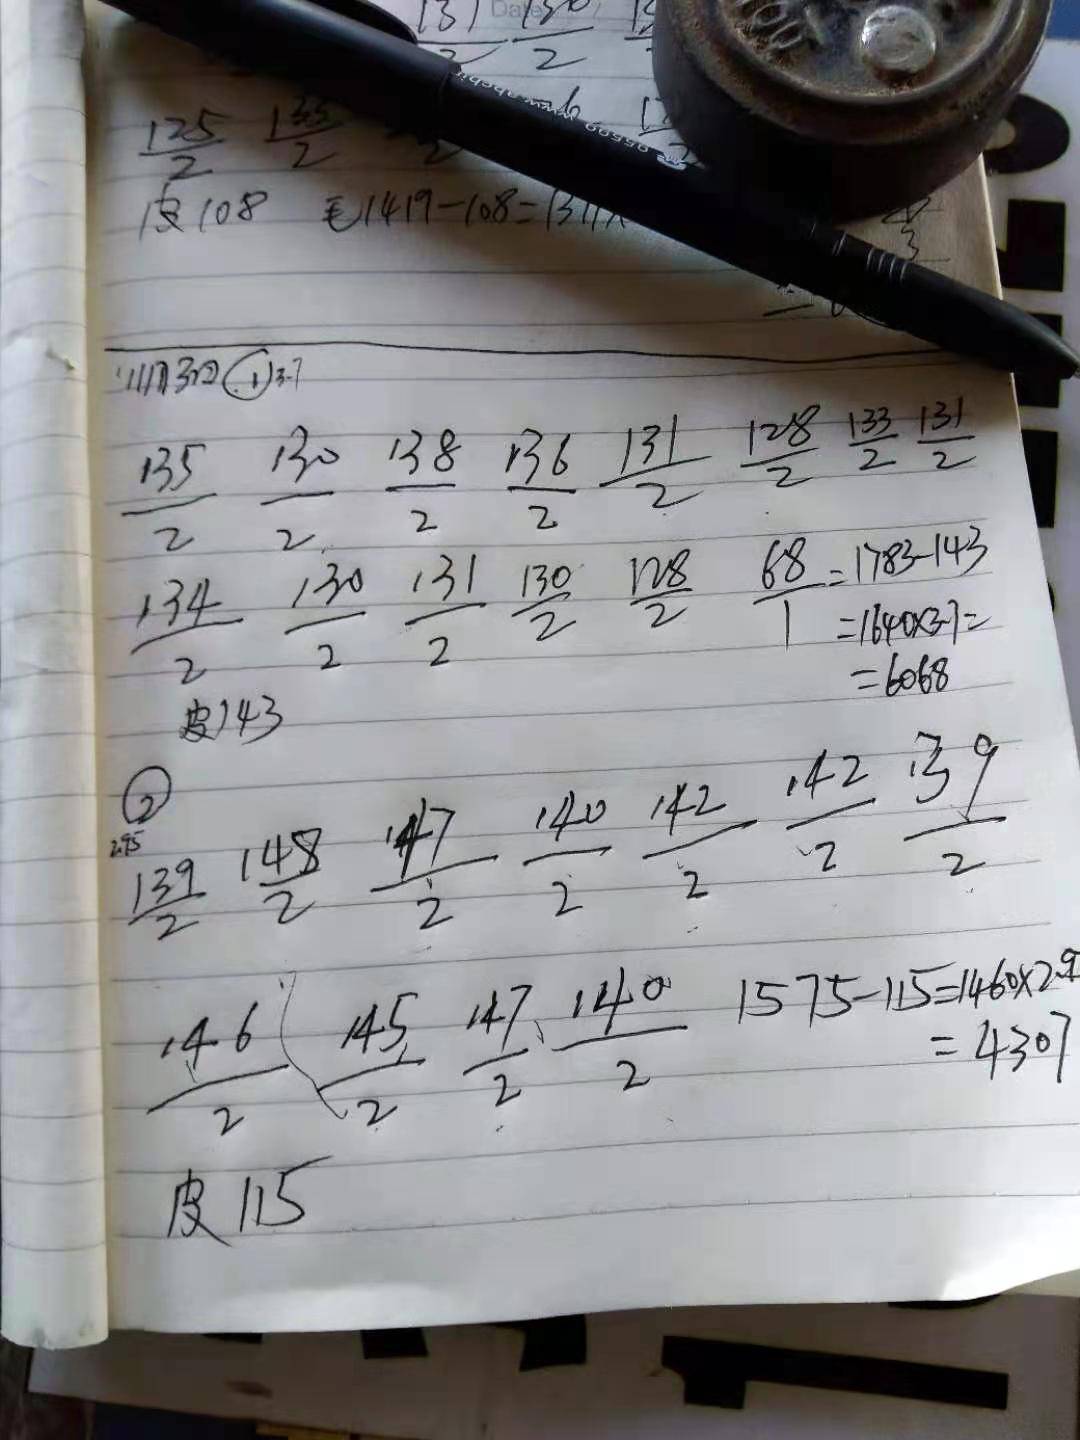 131/2 130/2
125/2 135/2
皮108 毛1419-108=1311x
11月30日 ① 3.7
135/2 130/2 138/2 136/2 131/2 128/2 133/2 131/2
134/2 130/2 131/2 130/2 128/2 68/1 =1783-143
=1640x3.7=
=6068
皮143
②
2.95
139/2 148/2 147/2 140/2 142/2 142/2 139/2
146/2 145/2 147/2 140/2 1575-115=1460x2.9
=4307
皮115